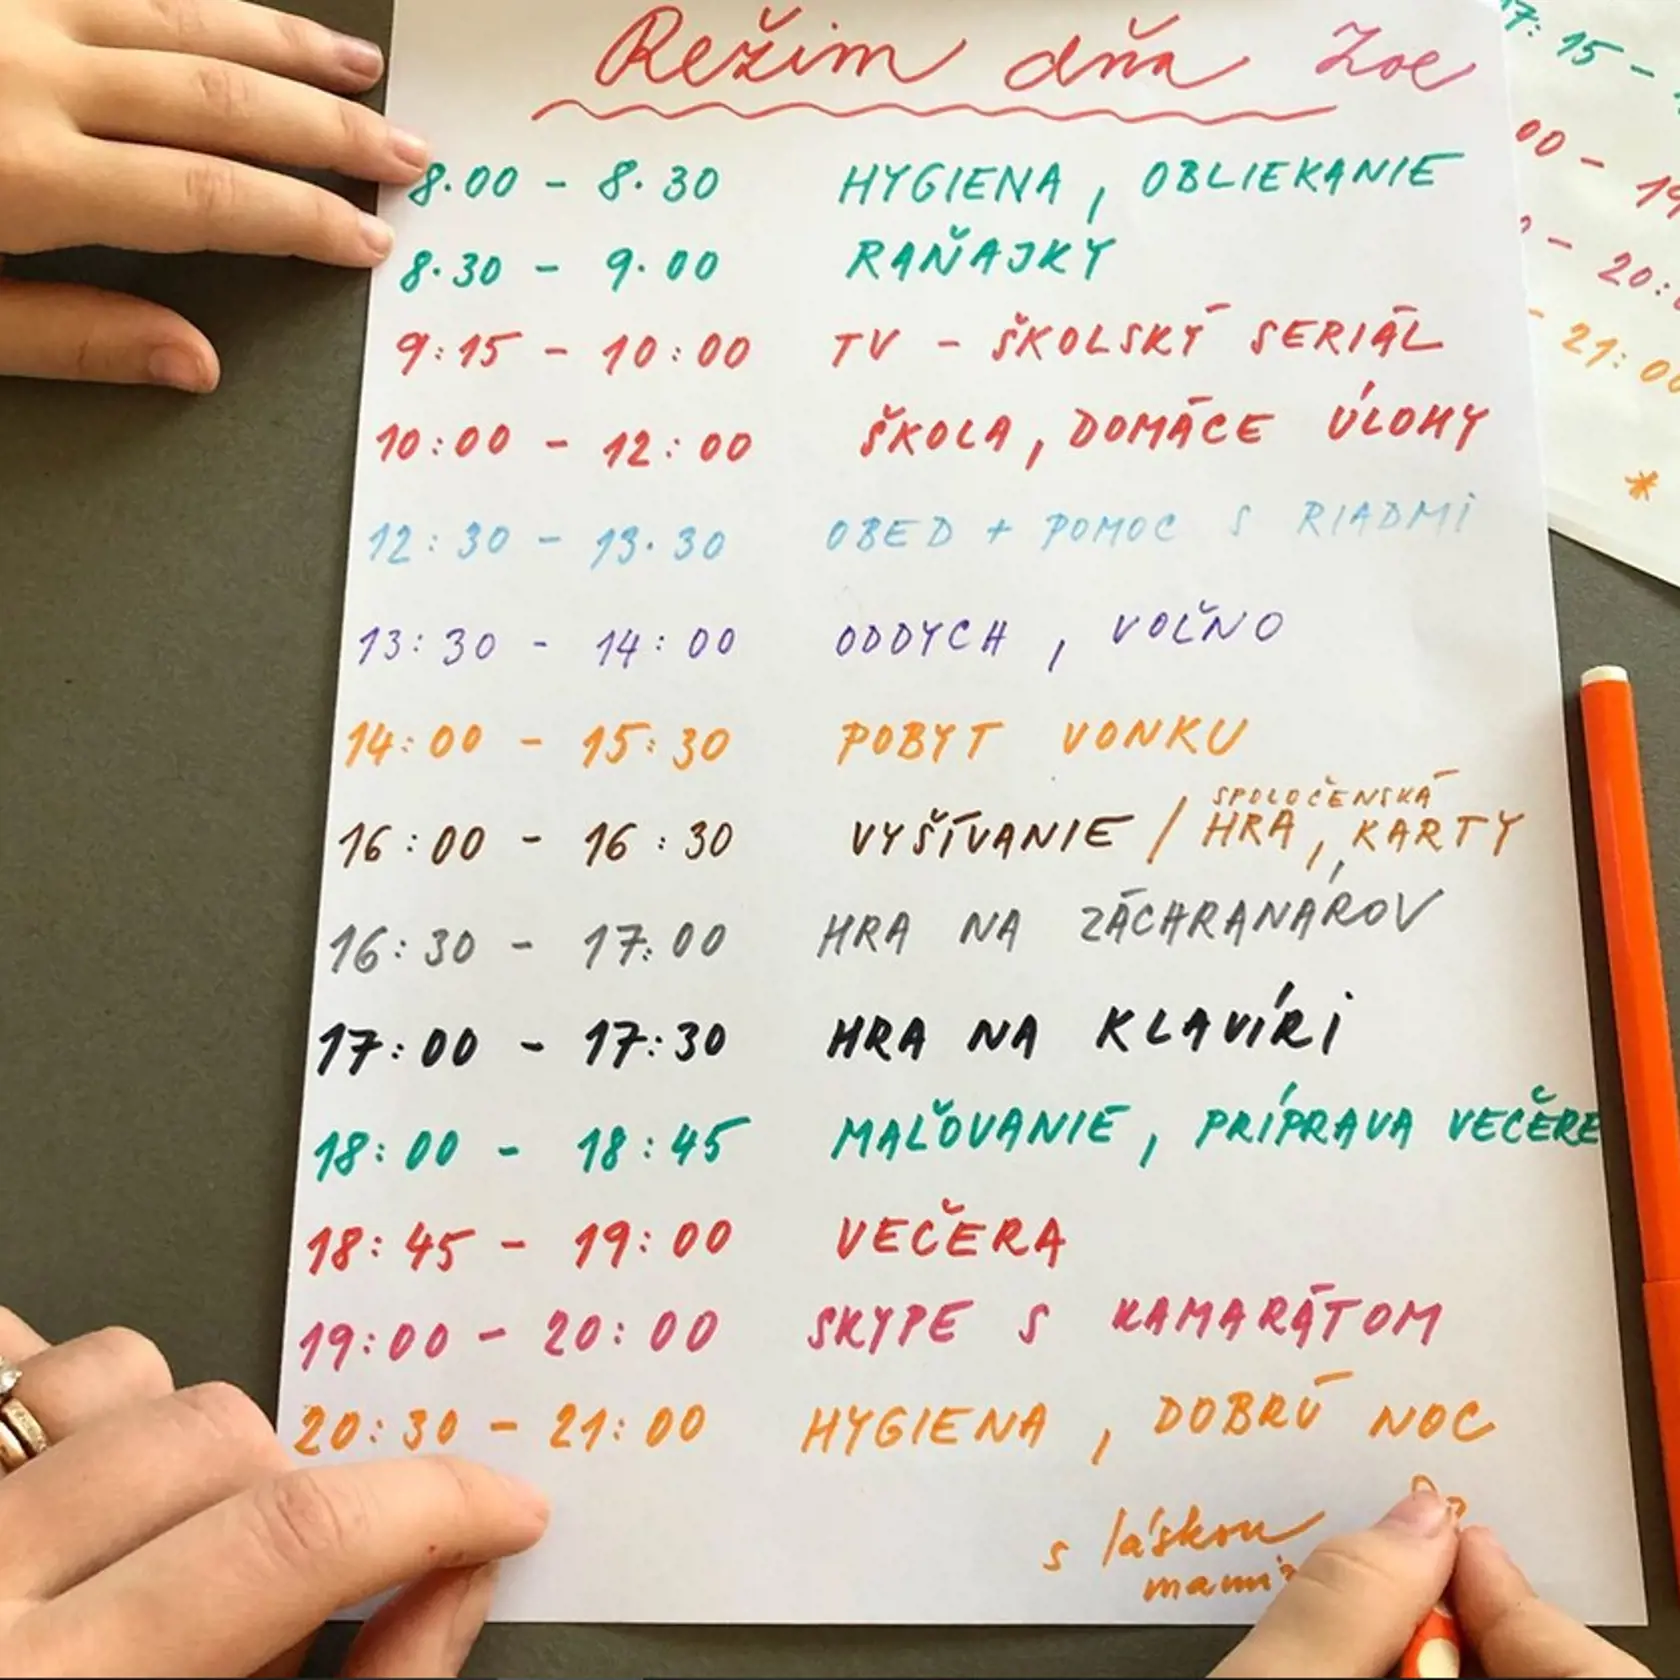 Režim dňa Zoe
8.00 - 8.30 HYGIENA, OBLIEKANIE
8.30 - 9.00 RAŇAJKY
9:15 - 10:00 TV - ŠKOLSKÝ SERIÁL
10:00 - 12:00 ŠKOLA, DOMÁCE ÚLOHY
12:30 - 13.30 OBED + POMOC S RIADMI
13:30 - 14:00 ODDYCH, VOĽNO
14:00 - 15:30 POBYT VONKU
16:00 - 16:30 VYŠÍVANIE / SPOLOČENSKÁ HRA, KARTY
16:30 - 17:00 HRA NA ZÁCHRANÁROV
17:00 - 17:30 HRA NA KLAVÍRI
18:00 - 18:45 MAĽOVANIE, PRÍPRAVA VEČERE
18:45 - 19:00 VEČERA
19:00 - 20:00 SKYPE S KAMARÁTOM
20:30 - 21:00 HYGIENA, DOBRÚ NOC
s láskou
17:15 -
00 - 19
- 20:
- 21:00
*